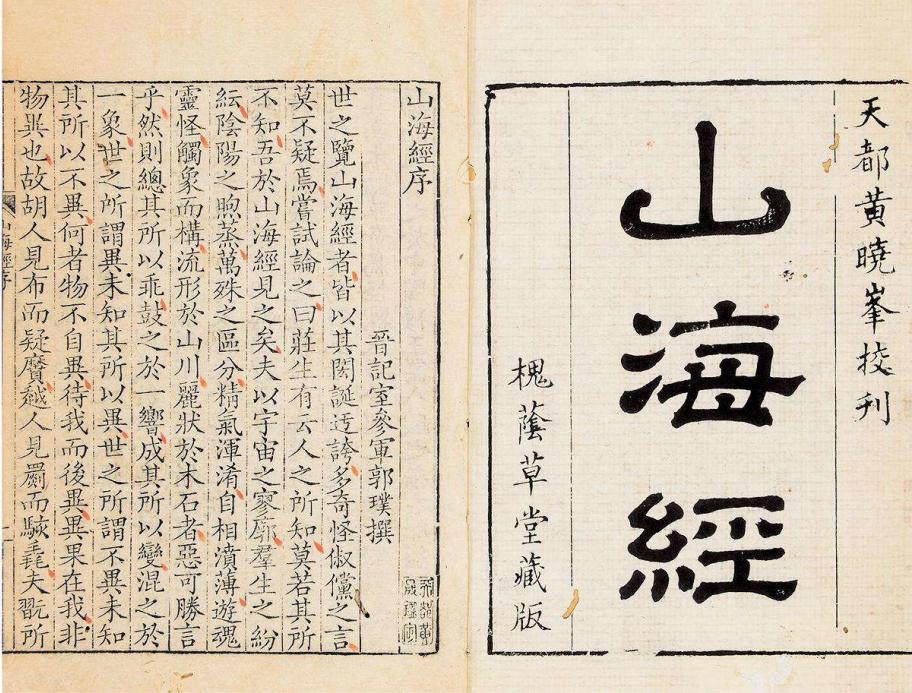 天都黃曉峯挍刋
山海經
槐蔭草堂藏版
山海經序
晉記室參軍郭璞撰
世之覽山海經者皆以其閎誕迂誇多奇怪俶儻之言
莫不疑焉嘗試論之曰莊生有云人之所知莫若其所
不知吾於山海經見之矣夫以宇宙之寥廓羣生之紛
紜陰陽之煦蒸萬殊之區分精氣渾淆自相濆薄遊魂
靈怪觸象而構流形於山川麗狀於木石者惡可勝言
乎然則總其所以乖鼓之於一響成其所以變混之於
一象世之所謂異未知其所以異世之所謂不異未知
其所以不異何者物不自異待我而後異異果在我非
物異也故胡人見布而疑黂越人見罽而駭毳夫翫所
山海經序